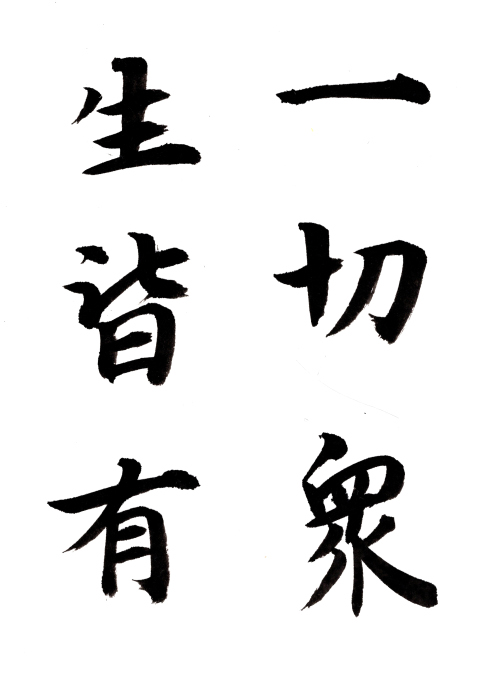 一切眾
生皆有